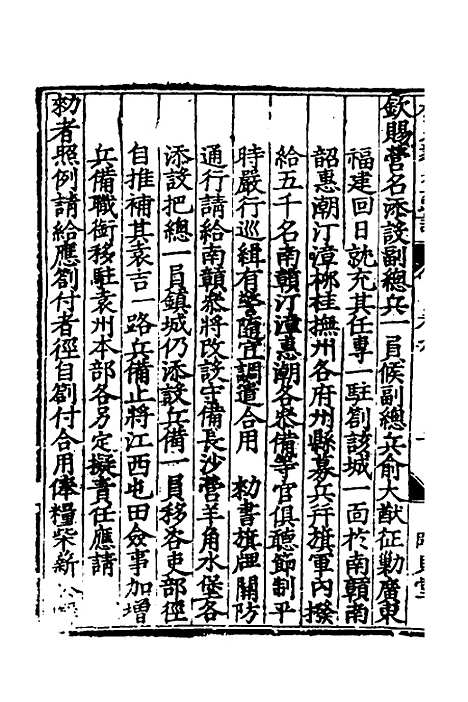 欽賜營名添設副總兵一員候副總兵俞大猷征勦廣東
福建回日就充其任專一駐劄該城一面於南贛南
韶惠潮汀漳郴桂撫州各府州縣募兵行旗軍內撥
給五千名南贛汀漳惠潮各叅備等官俱聽節制平
時嚴行巡緝有警隨宜調遣合用 勑書旗牌關防
通行請給南贛叅將改設守備長沙營羊角水堡各
添設把總一員鎮城仍添設兵備一員移咨吏部徑
自推補其袁吉一路兵備止將江西屯田僉事加增
兵備職銜移駐袁州本部各另定擬責任應請
勑者照例請給應劄付者徑自劄付合用俸糧柴薪